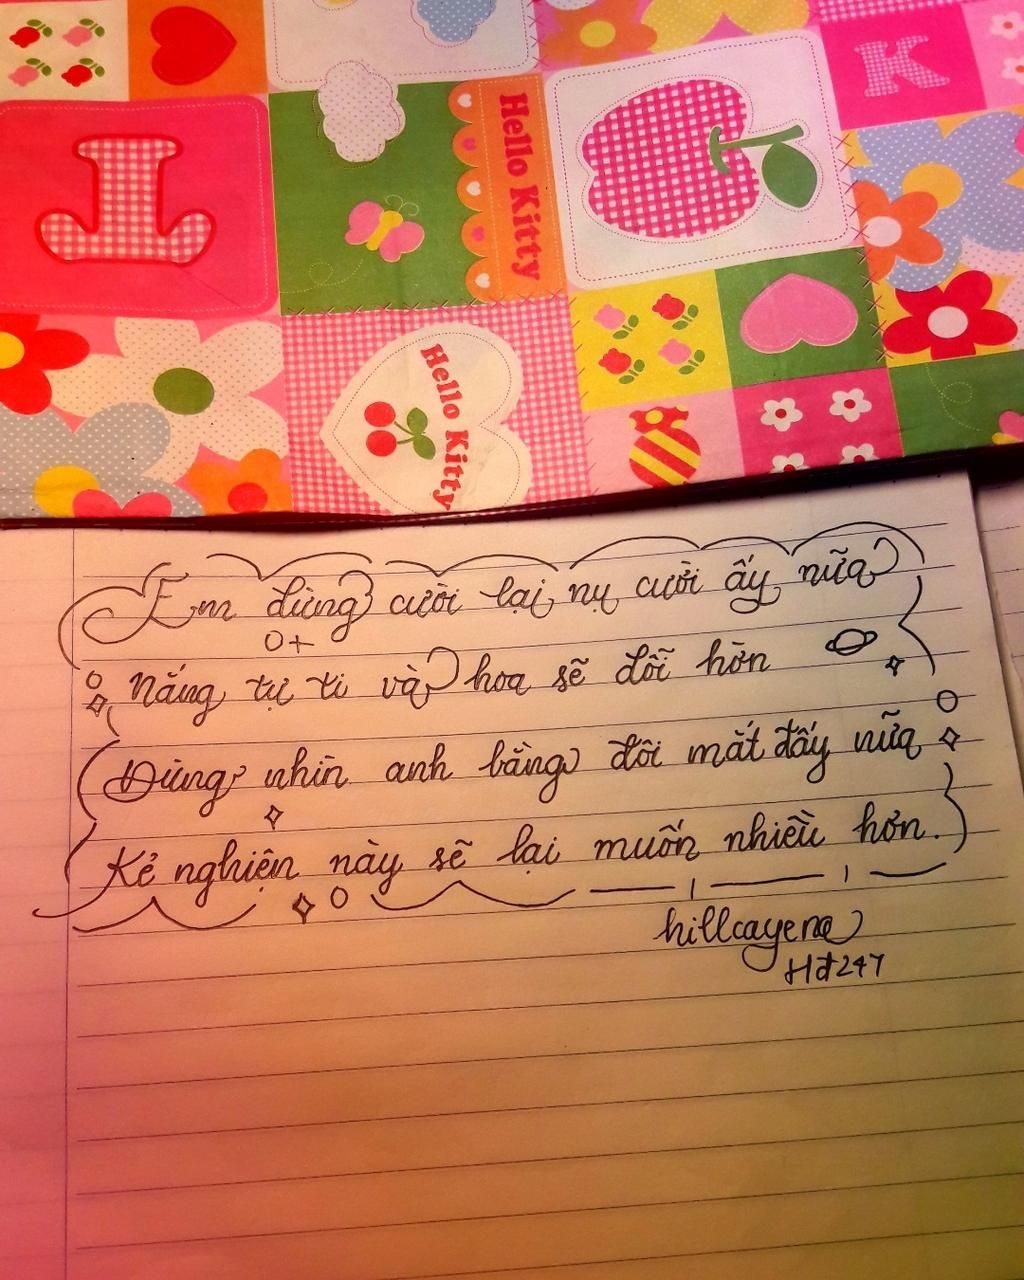 K
Hello Kitty
T
Hello Kitty
Em đừng cười lại nụ cười ấy nữa
Nắng tự ti và hoa sẽ dỗi hờn
Đừng nhìn anh bằng đôi mắt đấy nữa
Kẻ nghiện này sẽ lại muốn nhiều hơn.
hillcayena
Hđ247